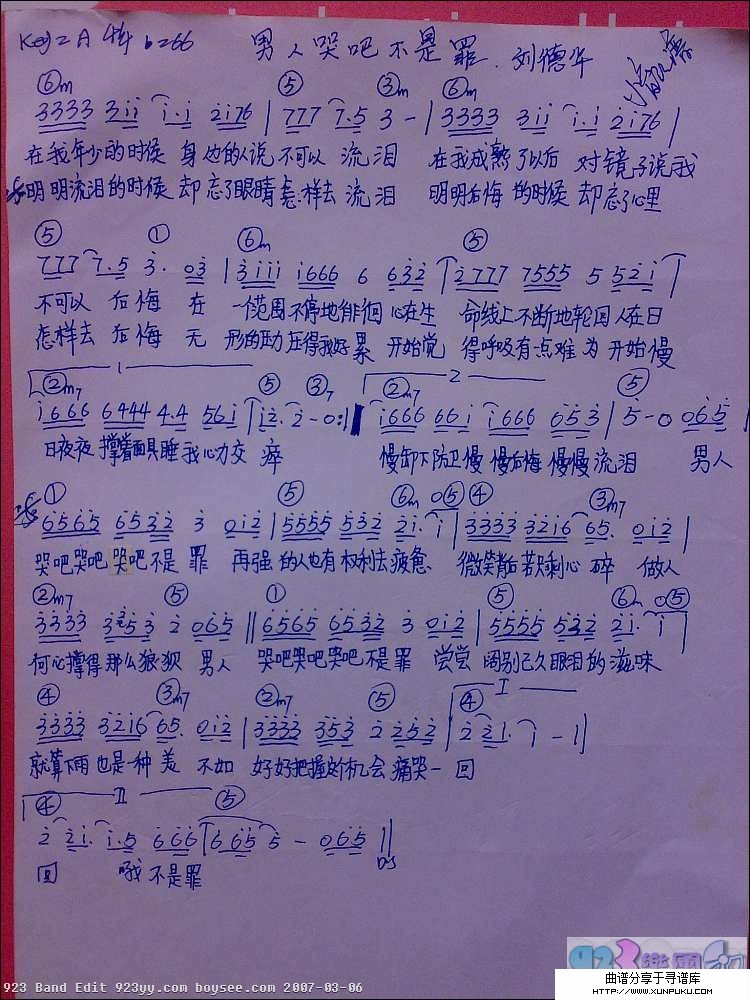 Key=A 4/4 ♭=66 男人哭吧不是罪. 刘德华
⑥m ⑤ ③m ⑥m
3333 3i̇i̇ i̇·i̇ 2̇i̇76 | 777 7·5 3 - | 3333 3i̇i̇ i̇·i̇ 2̇i̇76 |
在我年少的时候 身边的人说 不可以 流泪 在我成熟了以后 对镜子说我
明明流泪的时候 却忘了眼睛怎样去 流泪 明明后悔的时候 却忘了心里
⑤ ① ⑥m ⑤
777 7·5 3· 03̇ | 3̇i̇i̇i̇ i̇666 6 632̇ | 2̇777 7555 5 552̇i̇ |
不可以 后悔 在 一范围不停地徘徊 心在生 命线上不断地轮回 人在日
怎样去 后悔 无 形的压力压得我好累 开始觉 得呼吸有点难为 开始慢
1 2
②m7 ⑤ ③7 ②m7 ⑤
i̇666 6444 4·4 56i̇ | i̇2̇· 2̇ - 0 :|| i̇666 66i̇ i̇666 0653̇ | 5̇ - 0 06̇5̇ |
日夜夜 撑着面具睡 我心力交 瘁 慢卸下防卫慢 慢后悔 慢慢流泪 男人
① ⑤ ⑥m 0⑤ ④ ③m7
6̇5̇6̇5̇ 6̇5̇3̇2̇ 3̇ 0i̇2̇ | 5̇5̇5̇5̇ 5̇3̇2̇ 2̇i̇· i̇ | 3̇3̇3̇3̇ 3̇2̇i̇6 65· 0i̇2̇ |
哭吧哭吧 哭吧不是 罪 再强的人也有权利去疲惫 微笑背后若只剩心 碎 做人
②m7 ⑤ ① ⑤ ⑥m 0⑤
3̇3̇3̇3̇ 3̇2̇5̇3̇ 2̇ 06̇5̇ || 6̇5̇6̇5̇ 6̇5̇3̇2̇ 3̇ 0i̇2̇ | 5̇5̇5̇5̇ 5̇3̇2̇ 2̇i̇· i̇ |
何必撑得那么狼狈 男人 哭吧哭吧哭吧不是罪 尝尝 阔别已久眼泪的滋味
④ ③m7 ②m7 ⑤ ④ Ⅰ
3̇3̇3̇3̇ 3̇2̇i̇6 65· 0i̇2̇ | 3̇3̇3̇3̇ 3̇5̇3̇ 2̇ 2̇2̇5̇2̇ | 2̇2̇i̇· i̇ - ||
就算下雨也是一种美 不如 好好把握这个机会 痛哭一 回
④ Ⅱ ⑤
2̇ 2̇i̇· i̇·5 666 | 6 6̇5̇ 5̇ - 06̇5̇ ||
回 哦 不是罪 DS
923 Band Edit 923yy.com boysee.com 2007-03-06
923乐园
曲谱分享于寻谱库
HTTP://WWW.XUNPUKU.COM